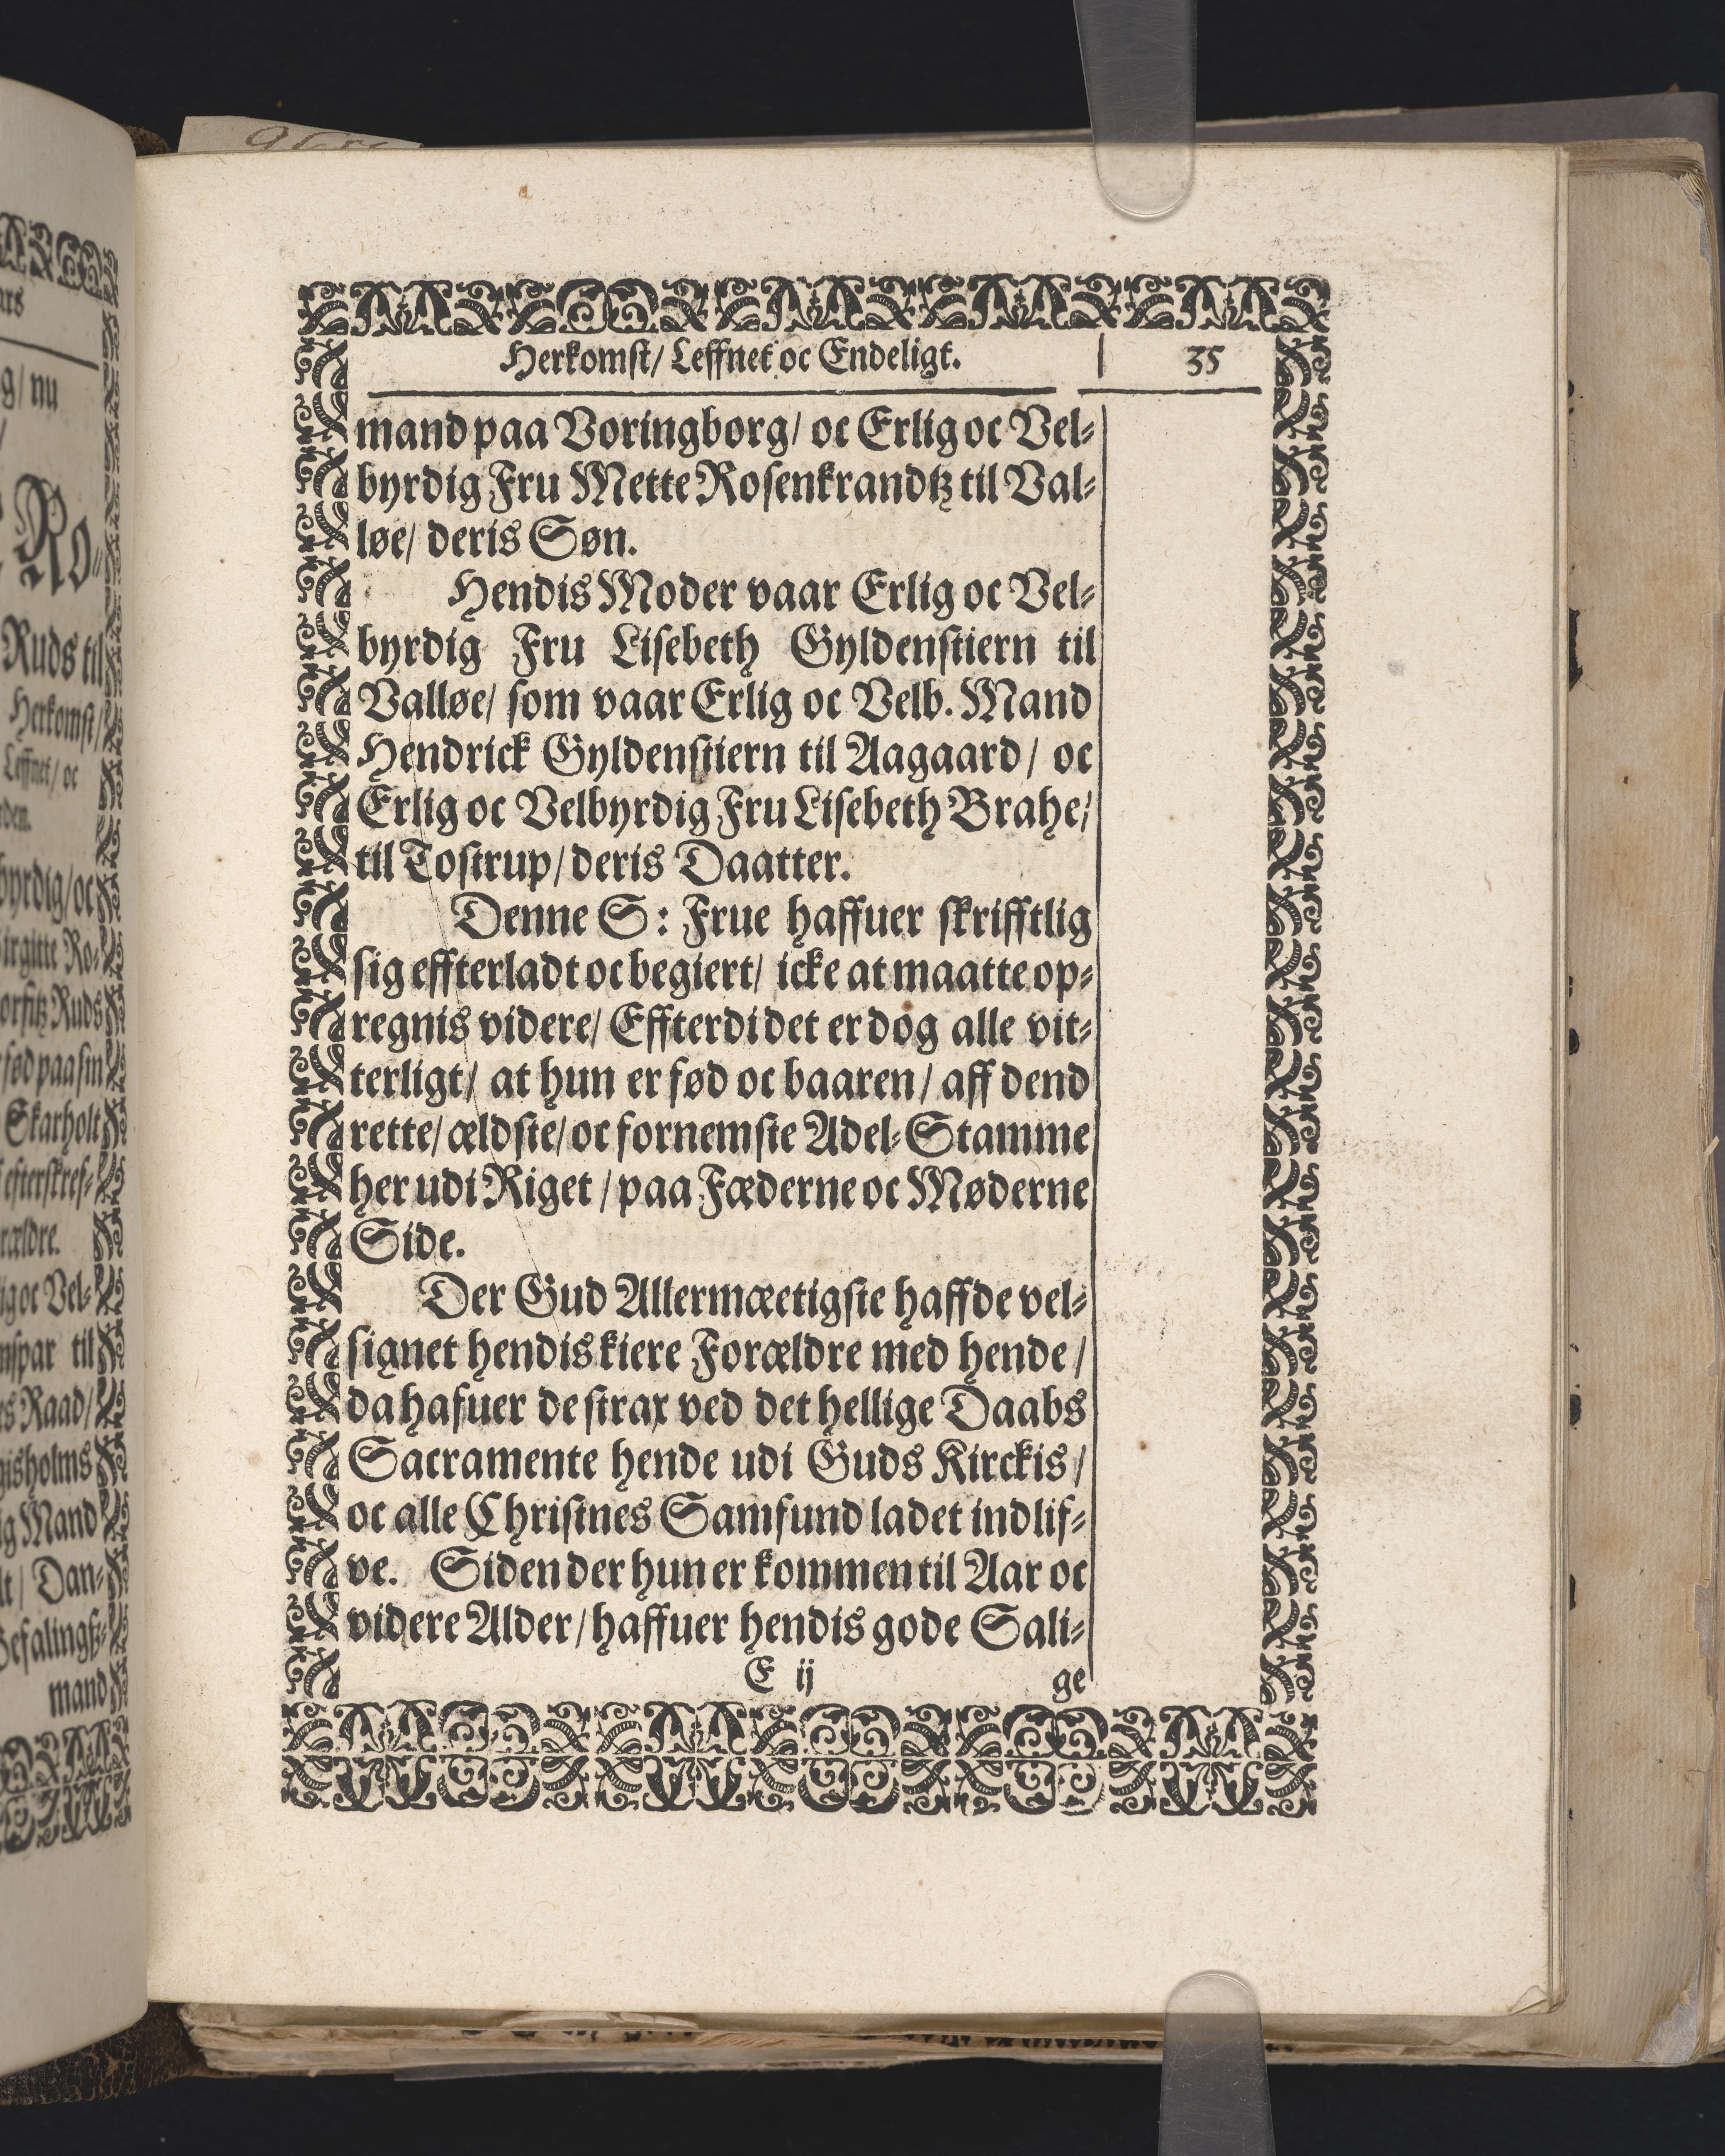 Herkomst/ Leffnet oc Endeligt. 35
mand paa Voringborg/ oc Erlig oc Vel-
byrdig Fru Mette Rosenkrandtz til Val-
løe/ deris Søn.
Hendis Moder vaar Erlig oc Vel-
byrdig Fru Lisebeth Gyldenstiern til
Valløe/ som vaar Erlig oc Velb. Mand
Hendrick Gyldenstiern til Aagaard/ oc
Erlig oc Velbyrdig Fru Lisebeth Brahe/
til Tostrup/ deris Daatter.
Denne S: Frue haffuer skrifftlig
sig effterladt oc begiert/ icke at maatte op-
regnis videre/ Effterdi det er dog alle vit-
terligt/ at hun er fød oc baaren/ aff dend
rette/ ældste/ oc fornemste Adel-Stamme
her udi Riget/ paa Fæderne oc Møderne
Side.
Der Gud Allermæetigste haffde vel-
signet hendis kiere Forældre med hende/
da hafuer de strax ved det hellige Daabs
Sacramente hende udi Guds Kirckis/
oc alle Christnes Samfund ladet indlif-
ve. Siden der hun er kommen til Aar oc
videre Alder/ haffuer hendis gode Sali-
E ij ge
g/ nu
Ro-
Ruds til
Herkomst/
Leffnet/ oc
byrdig/ oc
irgitte Ro-
Ruds
fød paa sin
Skarholt
efterskref-
ig oc Vel-
til
Raad/
ig Mand
Dan-
Befalingß-
mand